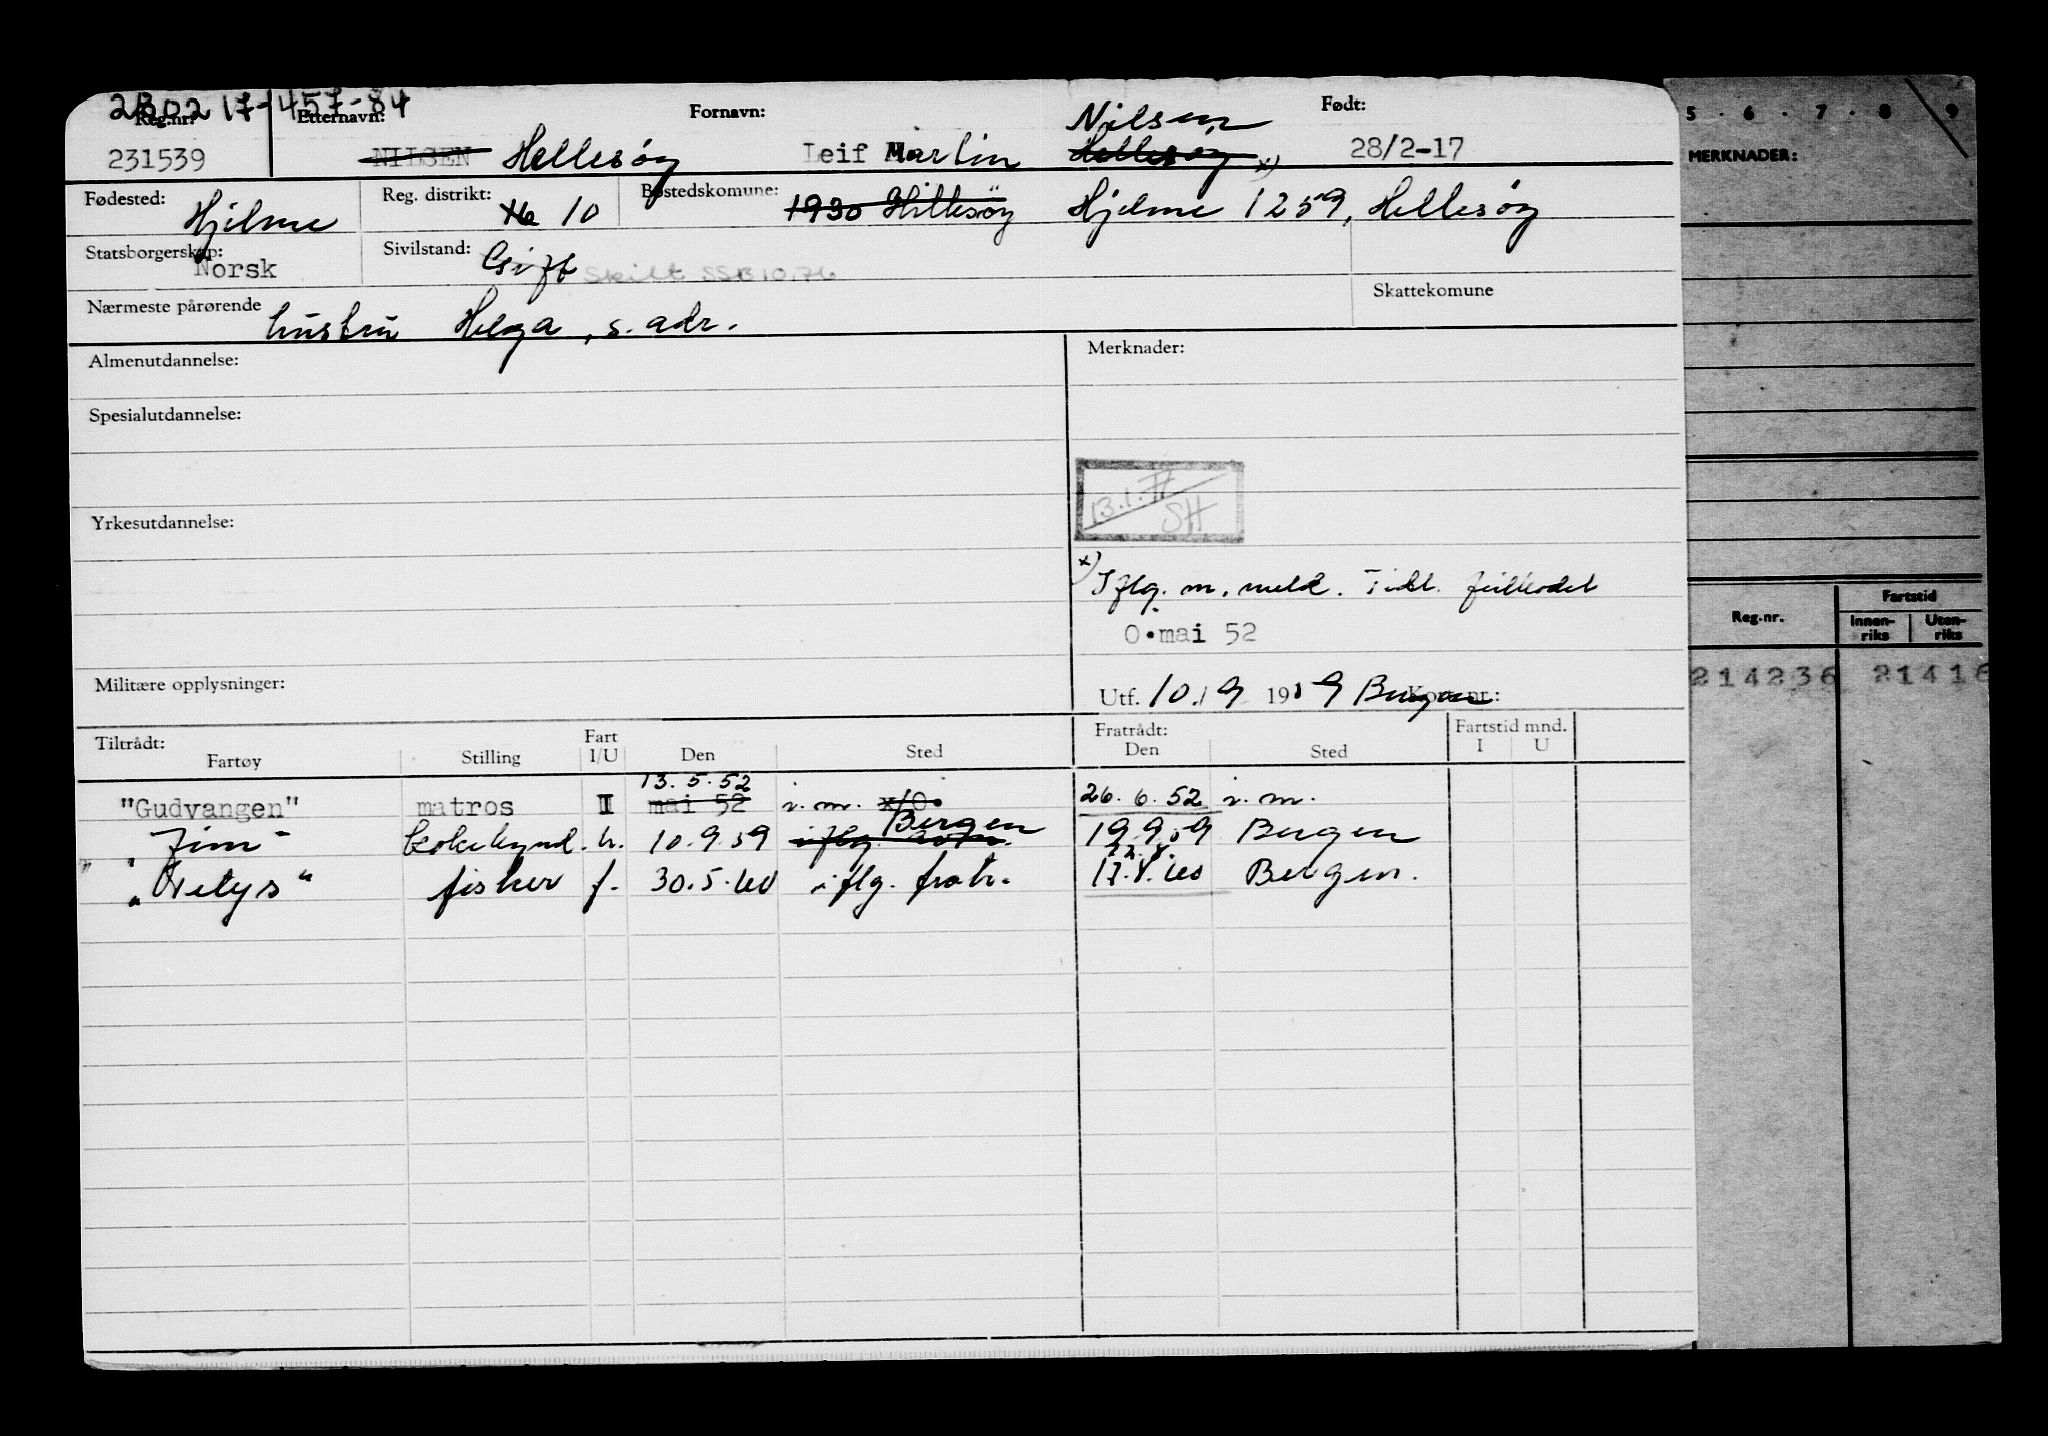 280217-457-84
Reg.nr. Etternavn: Fornavn: Født:
Nilsen
231539 NILSEN Hellesöy Leif Martin Hellesöy x) 28/2-17
Fødested: Hjelme Reg. distrikt: 10 Bostedskomune: 1930 Hellesöy Hjelme 1259, Hellesöy
Statsborgerskap: Norsk Sivilstand: Gift Skilt SSB 10.76
Nærmeste pårørende hustru Helga, s. adr. Skattekomune
Almenutdannelse: Merknader:
Spesialutdannelse:
13.1.77
SH
Yrkesutdannelse:
x) Iflg. m. meld. Tidl. feilkodet
O.mai 52
Militære opplysninger: Utf. 10/9 1959 Bergen Kort nr.:
Tiltrådt: Fratrådt: Fartstid mnd.
Fartøy Stilling Fart I/U Den Sted Den Sted I U
13.5.52
"Gudvangen" matros mai 52 i.m. x/O. 26.6.52 i.m.
Bergen
"Jim" kokekynd. h. 10.9.59 19.9.59 Bergen
22.8.
fisker f. 30.5.60 iflg. fratr. 17.8.60 Bergen.
5 . 6 . 7 . 8 . 9
MERKNADER:
Reg.nr. Fartstid
Innenriks Utenriks
214236 21416